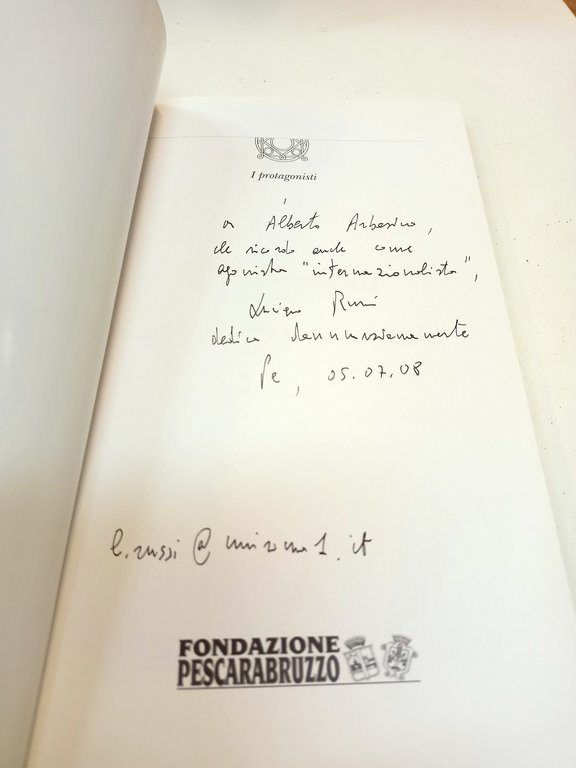 I protagonisti
1
a Alberto Arbasino,
che ricordo anche come
agonista "internazionalista",
Luciano Russi
dedica dannunzianamente
Pe, 05.07.08
l.russi@uniroma1.it
FONDAZIONE
PESCARABRUZZO